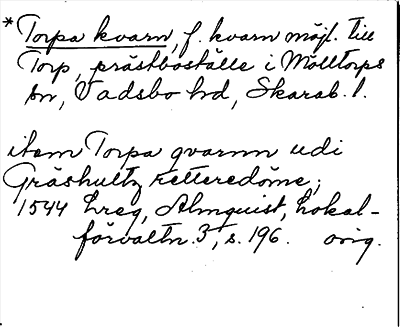 * Torpa kvarn, f. kvarn möjl. till
Torp, prästboställe i Mölltorps
sn, Vadsbo hd, Skarab. l.
item Torpa qvarnn udi
Gräshultz retteredöme;
1544 hreg, Almquist, Lokal-
förvaltn. 3, s. 196. orig.